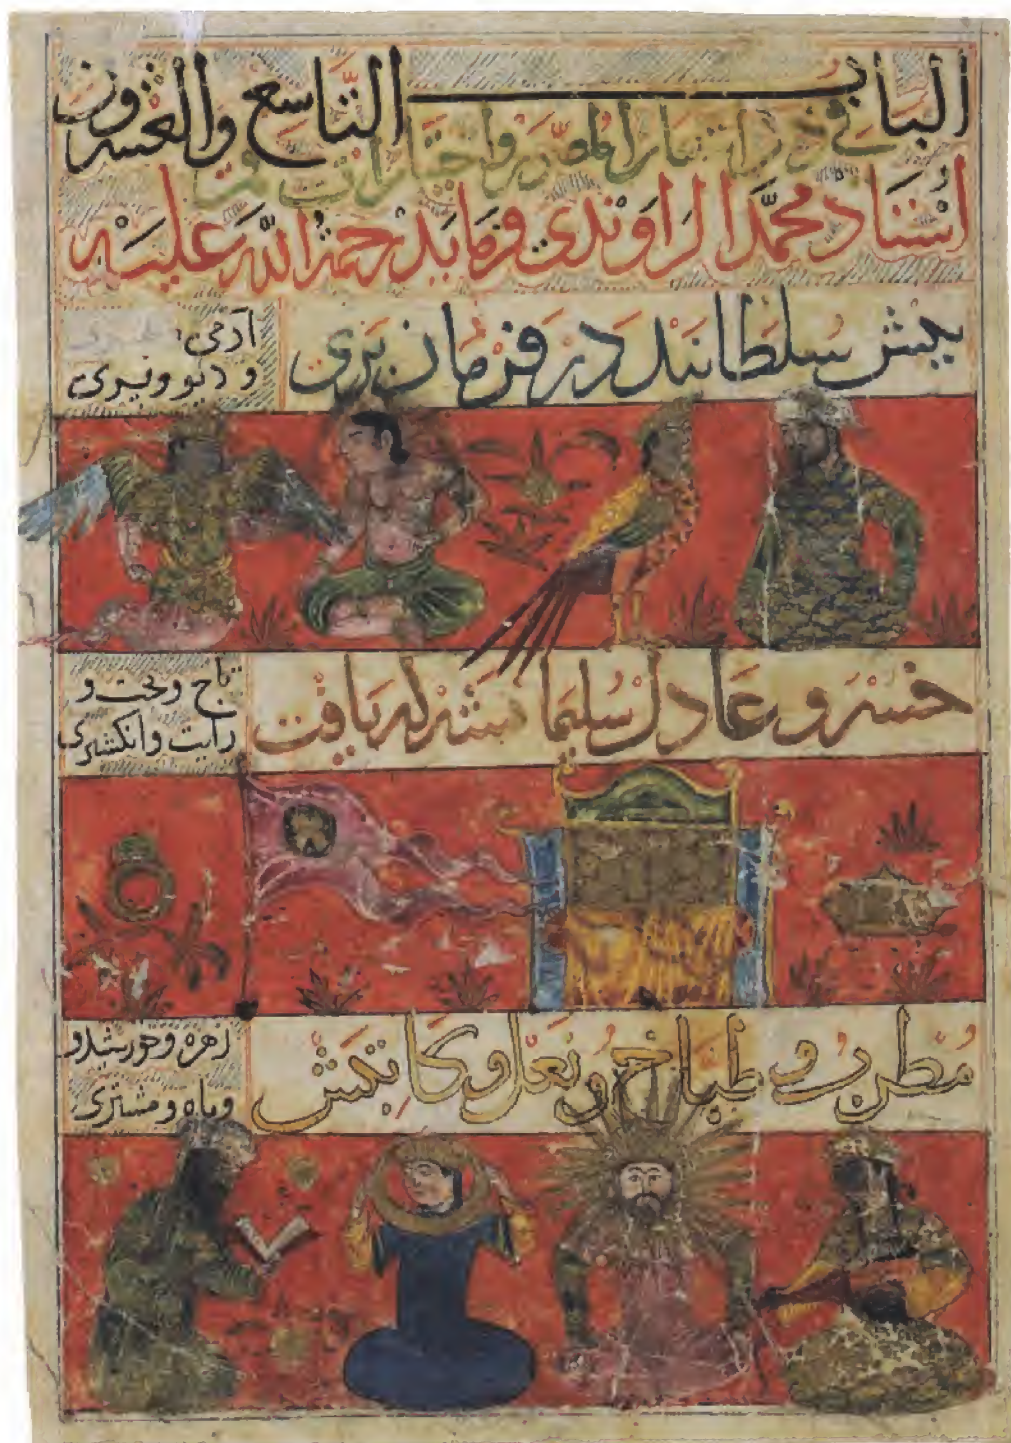 الباب التاسع والعشرون
في ذكر اشعار المصور واختيارات قمر
استاد محمد الراوندي فرمايد رحمة الله عليه
پیش سلطانند در فرمان بری
آدمی
و دیو و پری
خسرو عادل یافت
تاج و تخت و
رایت و انکشتری
مطرب و طباخ و نعل و کاتبش
زهره و خورشید و
و ماه و مشتری